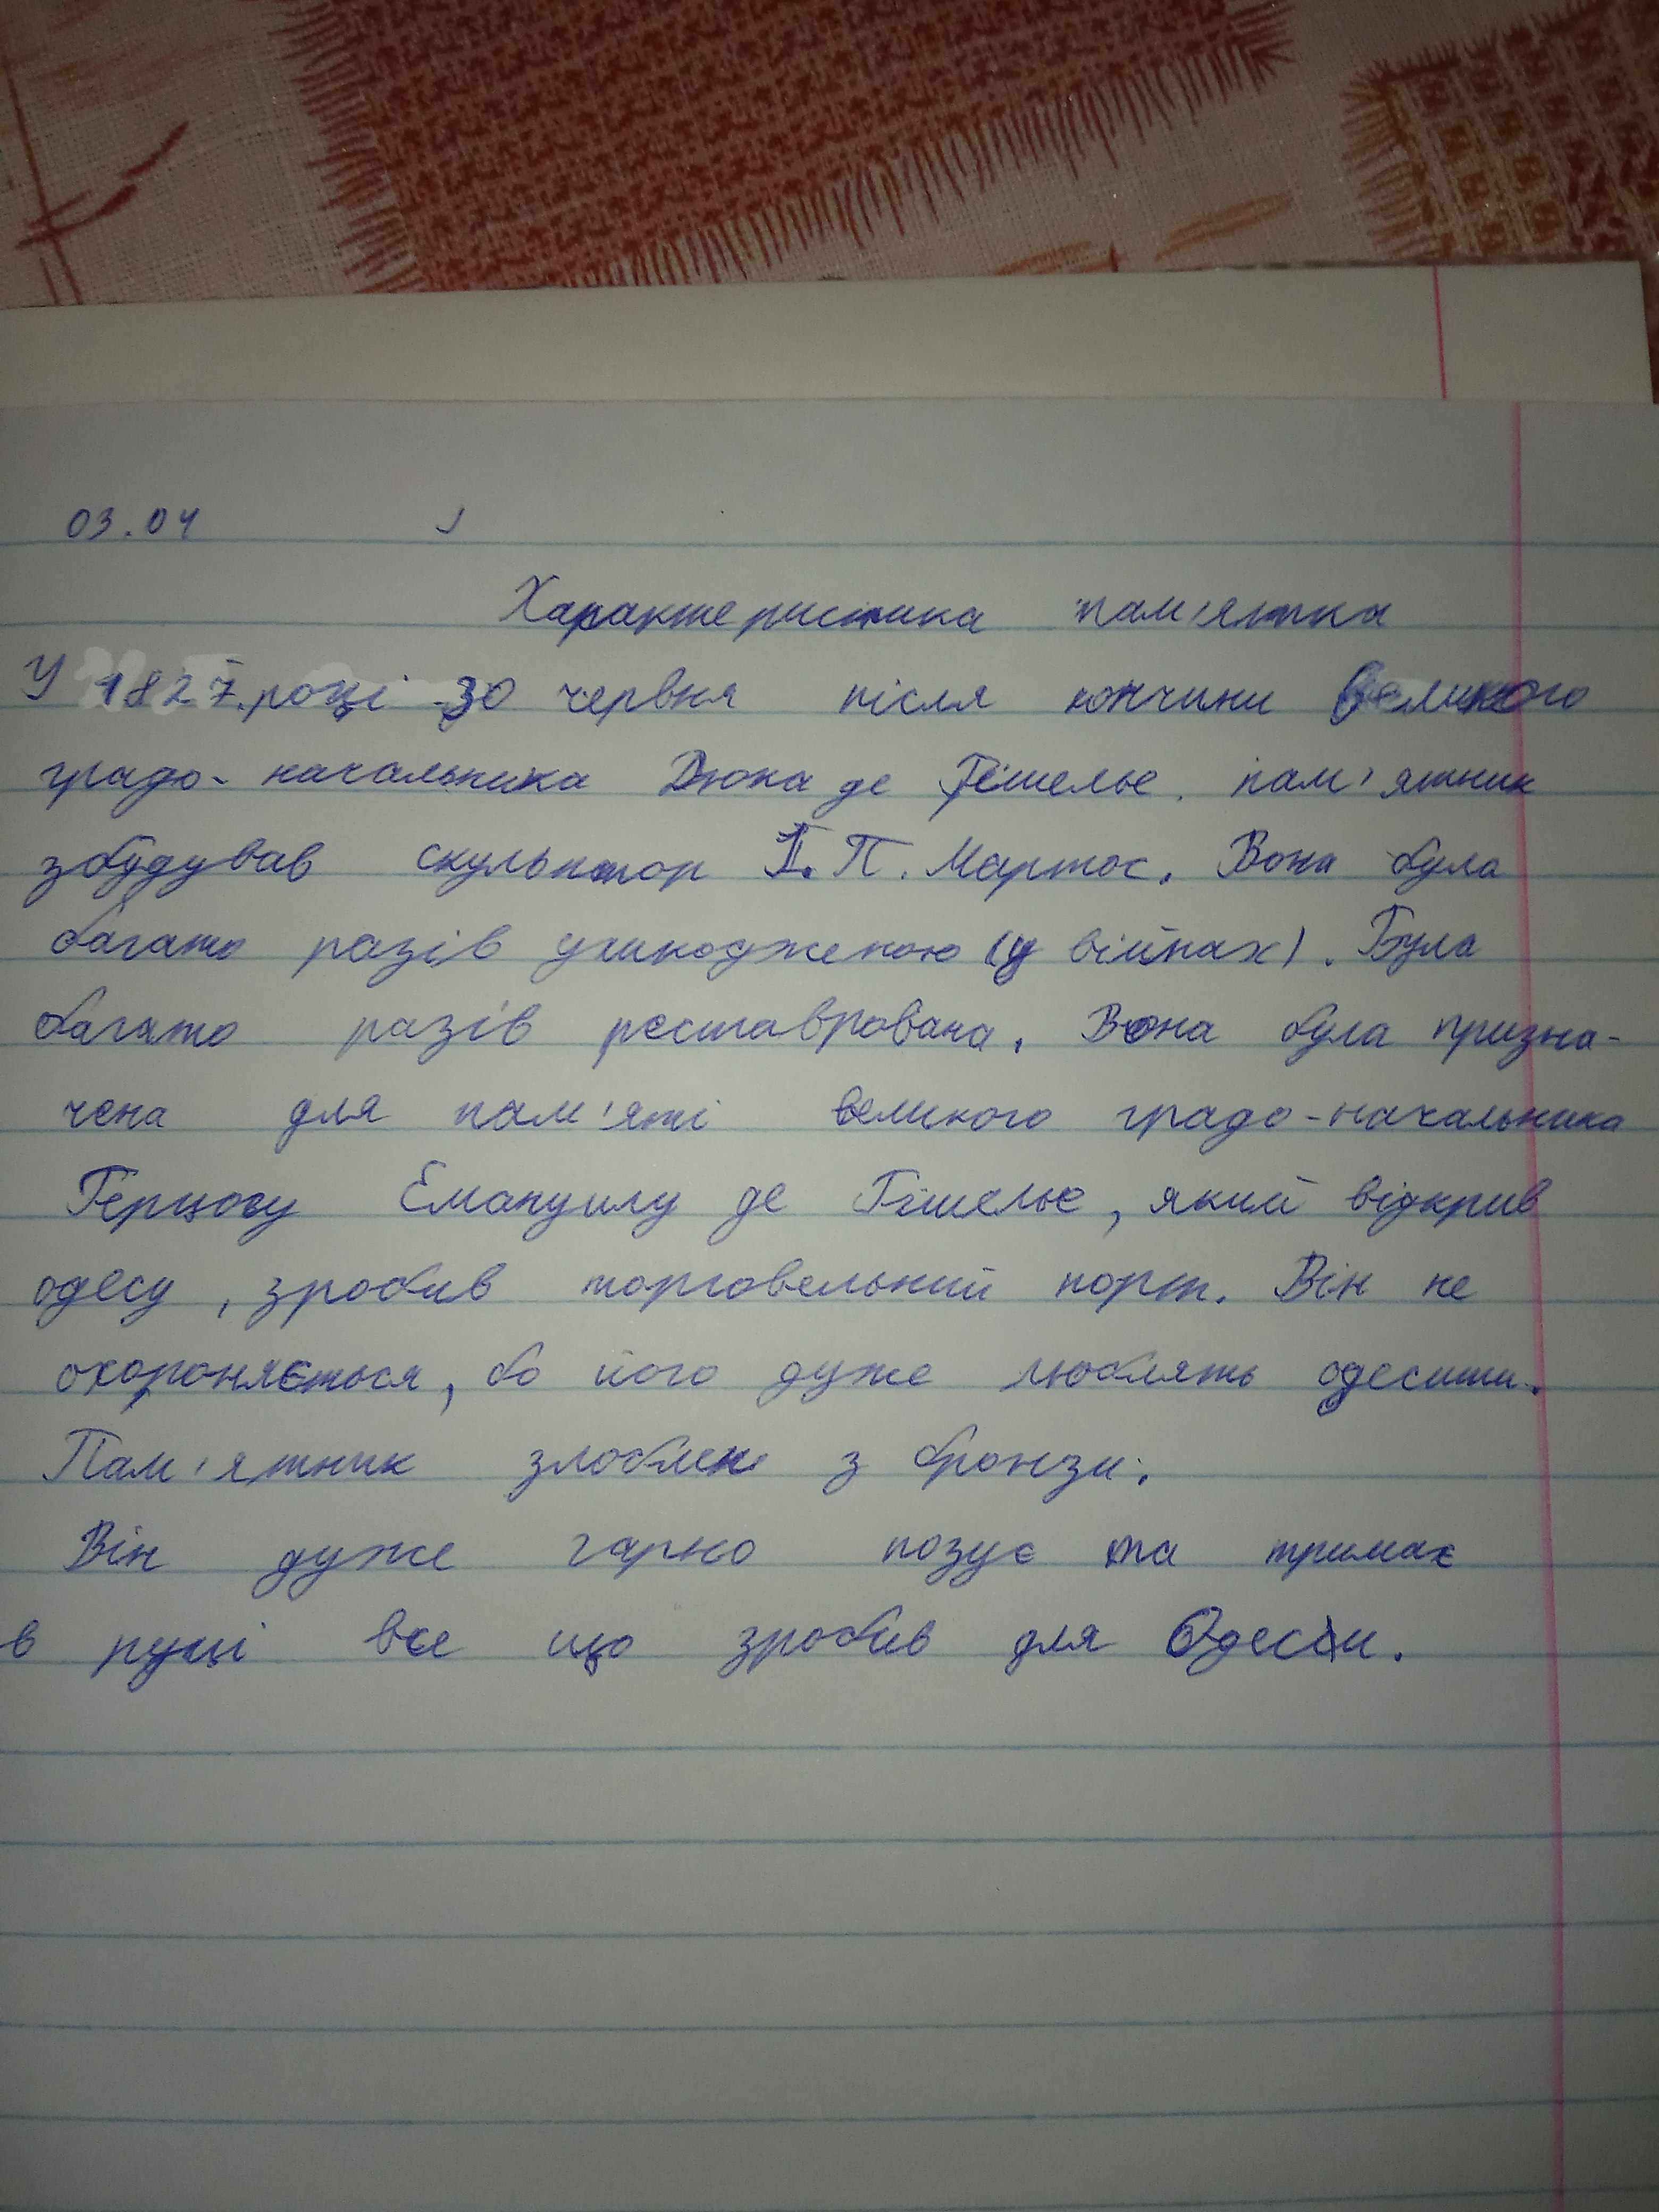 03.04
Характеристика пам'ятка
У 1827 році 30 червня після кончини великого
градо- начальника Дюка де Рішельє. пам'ятник
збудував скульптор І. П. Мартос. Вона була
багато разів ушкодженою (у війнах). Була
багато разів реставрована. Вона була призна-
чена для пам'яті великого градо-начальника
Герцогу Емануилу де Рішельє, який відкрив
одесу, зробив торговельний порт. Він не
охороняється, бо його дуже люблять одесити.
Пам'ятник злоблен з бронзи.
Він дуже гарно позує та тримає
в руці все що зробив для Одеси.